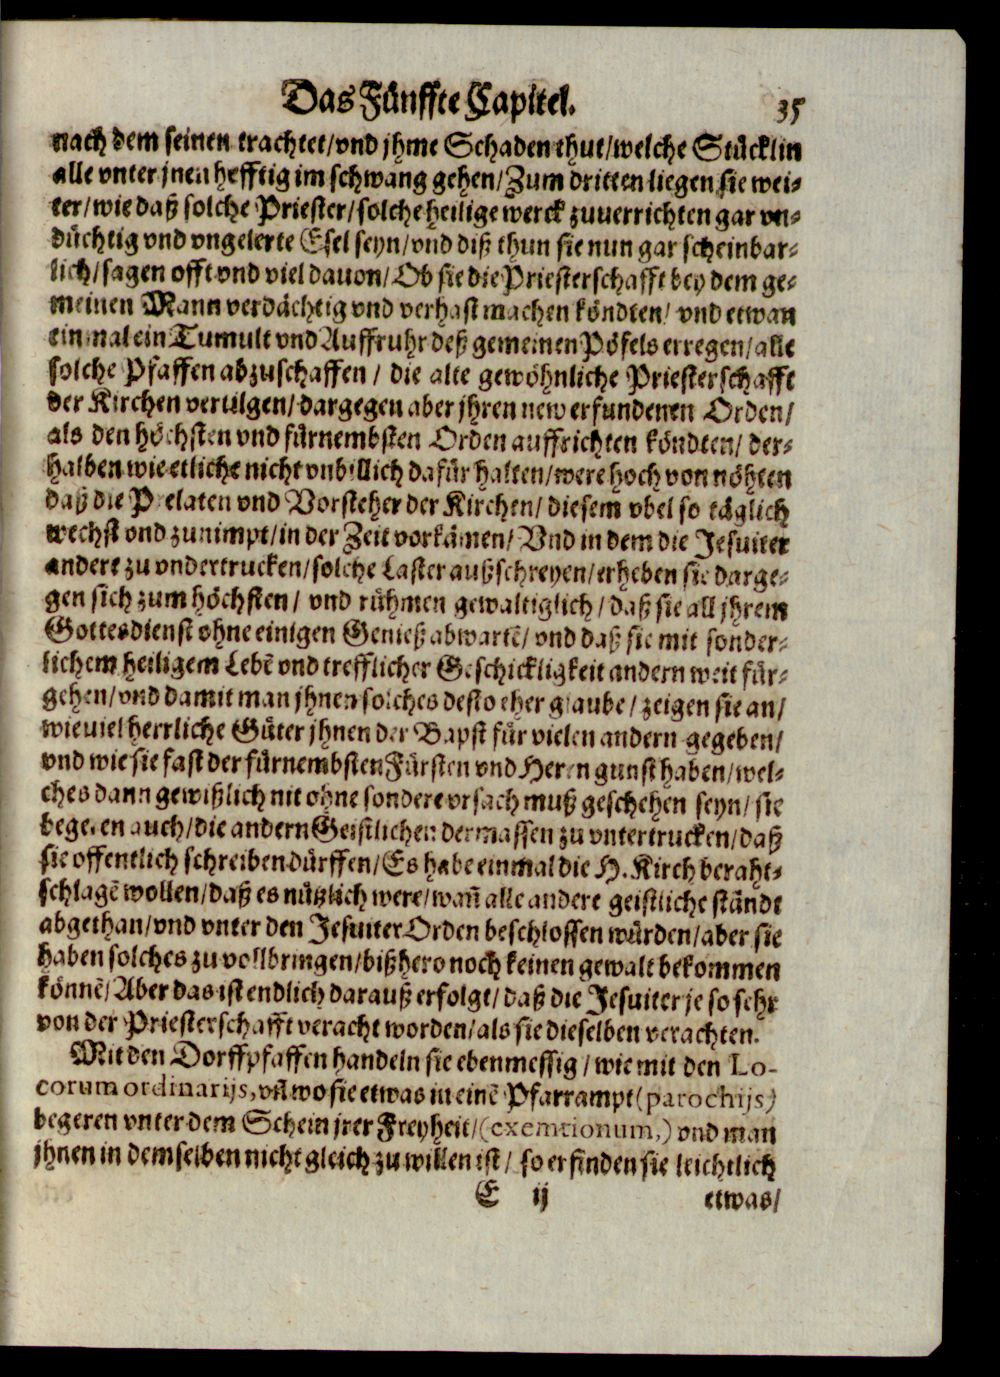 Das Fünffte Capitel. 35
nach dem seinen trachtet/vnd jhme Schaden thut/welche Stücklin
alle vnter jnen hefftig im schwang gehen/Zum dritten liegen sie wei-
ter/wie daß solche Priester/solche heilige werck zuuerrichten gar vn-
düchtig vnd vngelerte Esel seyn/vnd diß thun sie nun gar scheinbar-
lich/sagen offt vnd viel dauon/Ob sie die Priesterschafft bey dem ge-
meinen Mann verdächtig vnd verhast machen köndten/ vnd etwan
ein mal ein Tumult vnd Auffruhr deß gemeinen Pöfels erregen/alle
solche Pfaffen abzuschaffen / die alte gewöhnliche Priesterschafft
der Kirchen vertilgen/dargegen aber jhren new erfundenen Orden/
als den höchsten vnd fürnembsten Orden auffrichten köndten/ der-
halben wie etliche nicht vnbillich dafür halten/were hoch von nöhten
daß die Prelaten vnd Vorsteher der Kirchen/ diesem vbel so täglich
wechst vnd zunimpt/in der Zeit vorkämen/ Vnd in dem die Jesuiter
andere zu vndertrucken/solche Laster außschreyen/erheben sie darge-
gen sich zum höchsten/ vnd rühmen gewaltiglich/daß sie all jhrem
Gottesdienst ohne einigen Genieß abwartē/vnd daß sie mit sonder-
lichem heiligem Lebē vnd trefflicher Geschickligkeit andern weit für-
gehen/vnd damit man jhnen solches desto eher glaube/zeigen sie an/
wieuiel herrliche Güter jhnen der Bapst für vielen andern gegeben/
vnd wie sie fast der fürnembsten Fürsten vnd Heren gunst haben/wel-
ches dann gewißlich nit ohne sondere vrsach muß geschehen seyn/ sie
begeren auch/die andern Geistlichen dermassen zu vntertrucken/daß
sie offentlich schreiben dürffen/Es habe einmal die H. Kirch beraht-
schlagē wollen/daß es nützlich were/wañ alle andere geistliche stände
abgethan/vnd vnter den Jesuiter Orden beschlossen würden/aber sie
haben solches zu vollbringen/bißhero noch keinen gewalt bekommen
könnē/Aber das ist endlich darauß erfolgt/daß die Jesuiter je so sehr
von der Priesterschafft veracht worden/als sie dieselben verachten.
Mit den Dorffpfaffen handeln sie ebenmessig/wie mit den Lo-
corum ordinarijs, vñ wo sie etwas in einē Pfarrampt (parochijs)
begeren vnter dem Schein jrer Freyheit/(exemtionum,) vnd man
jhnen in demselben nicht gleich zu willen ist/ so erfinden sie leichtlich
E ij etwas/